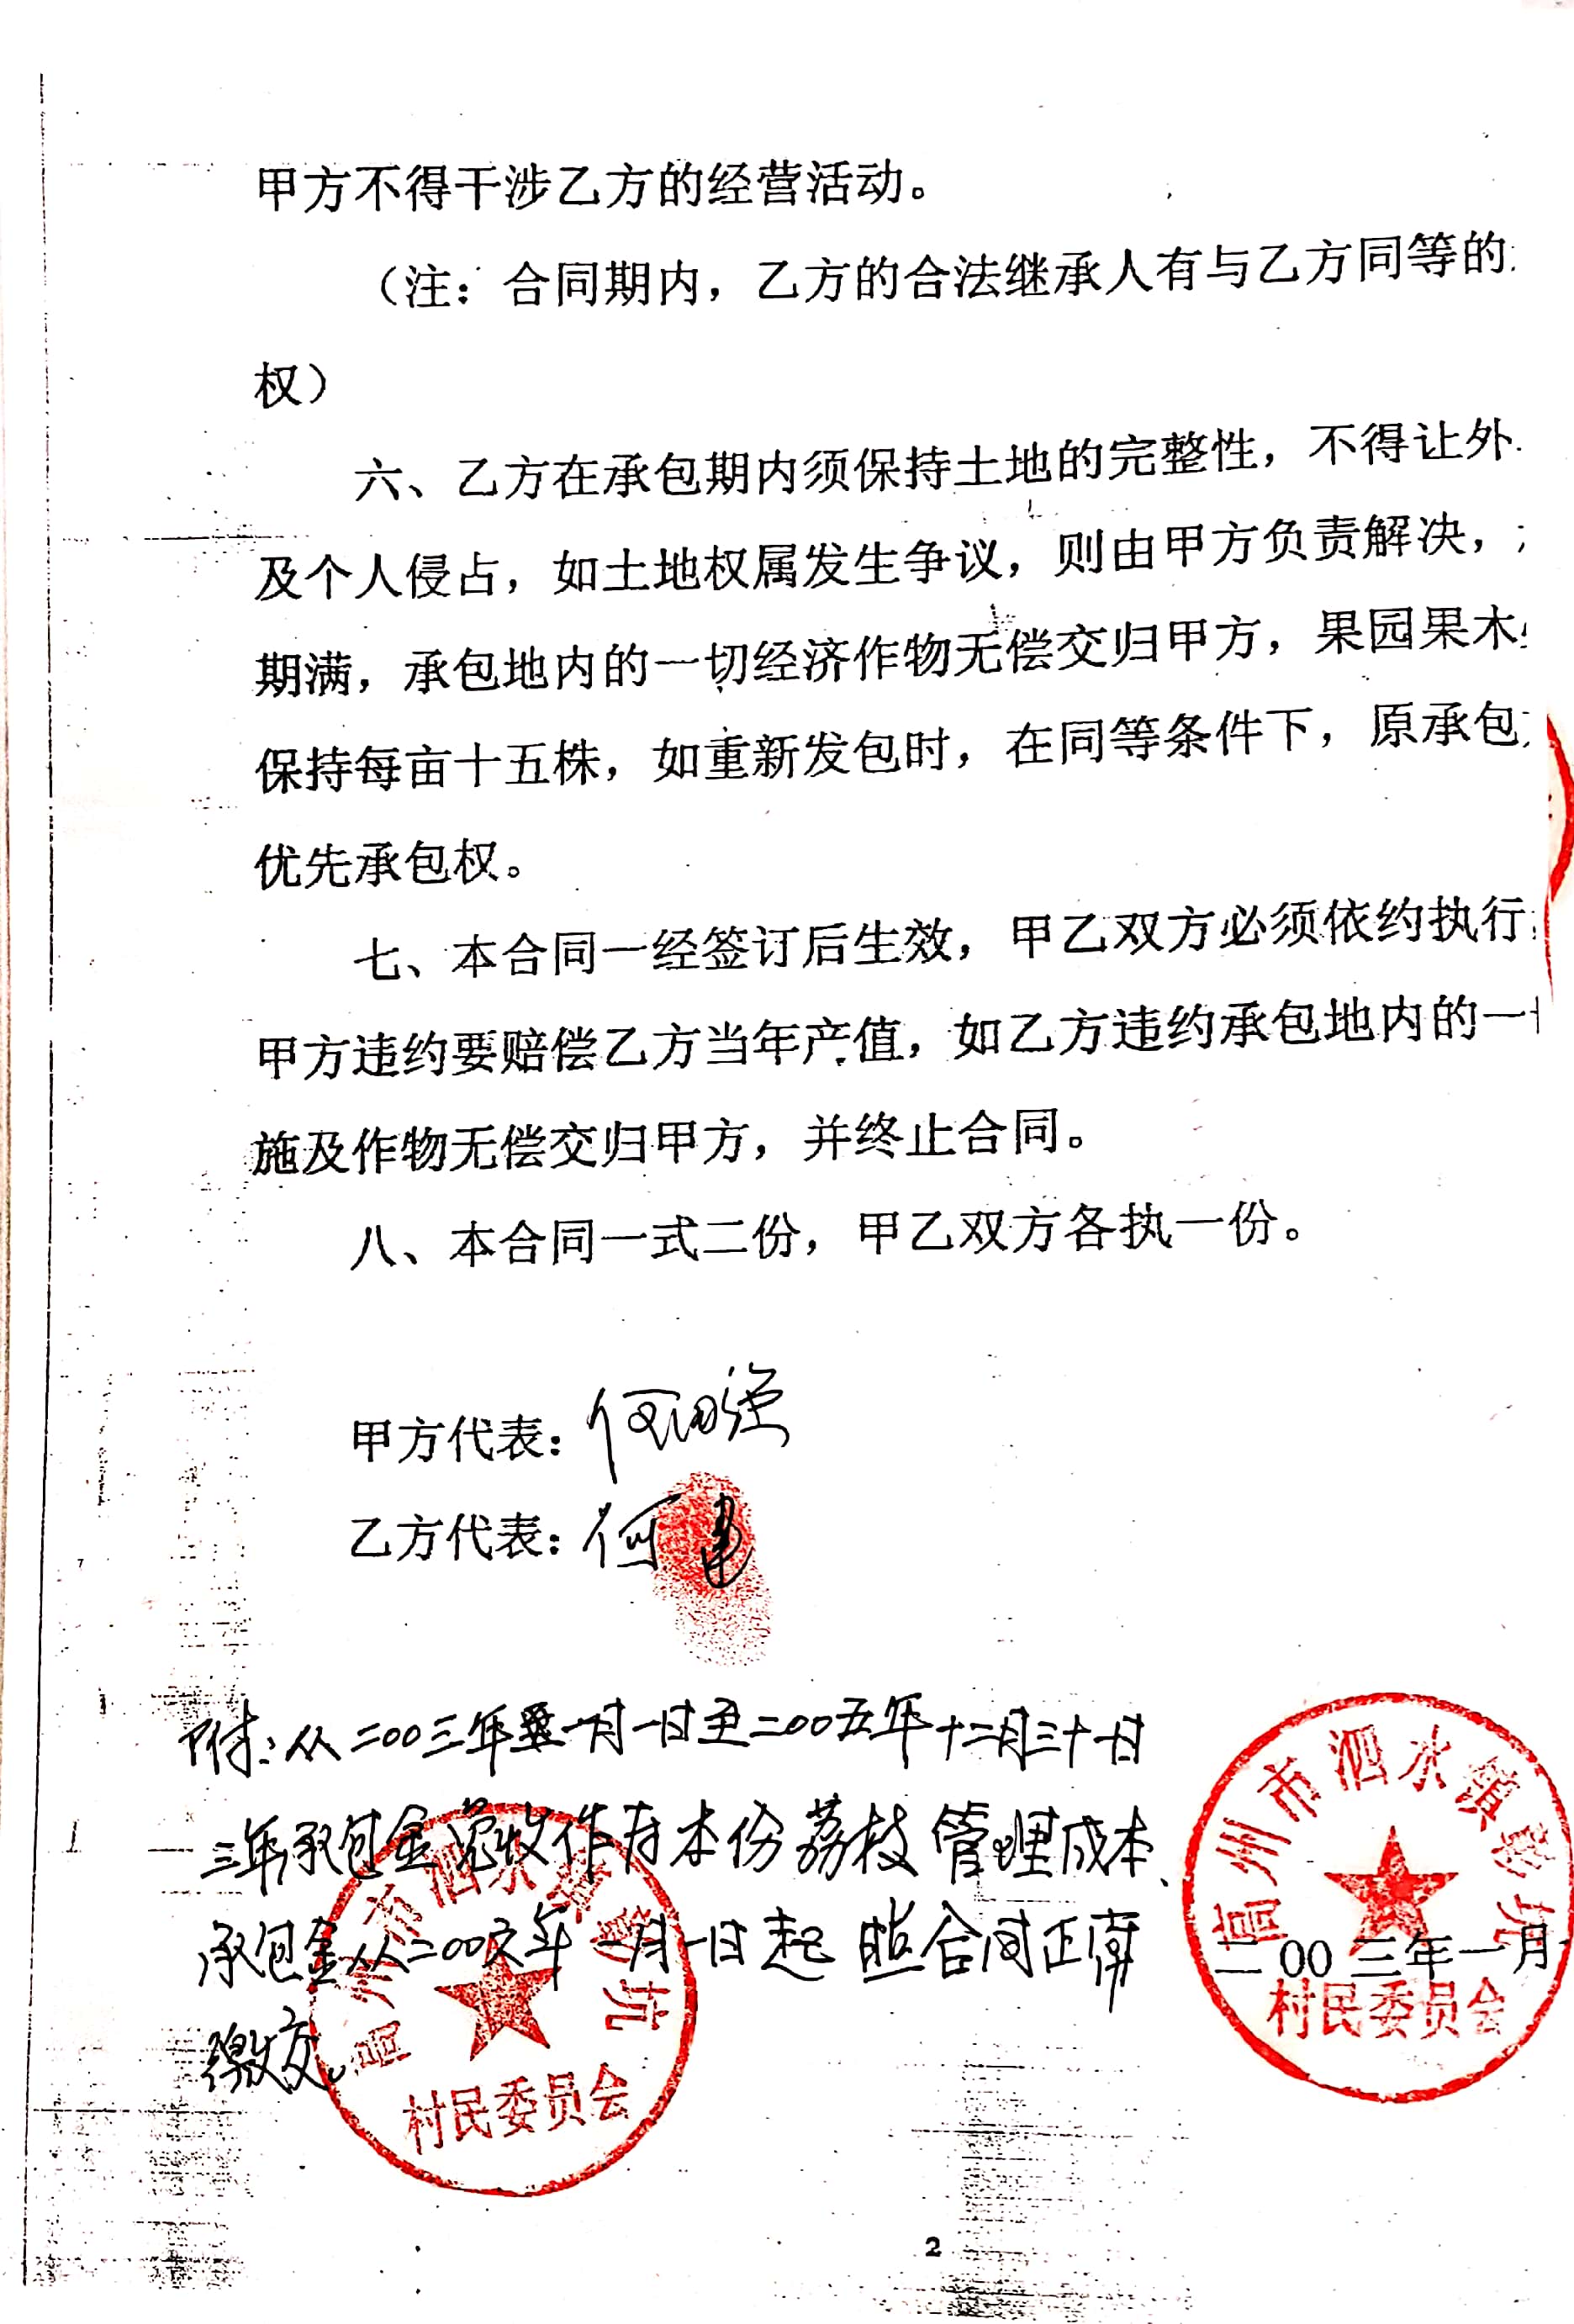 甲方不得干涉乙方的经营活动。
（注：合同期内，乙方的合法继承人有与乙方同等的
权）
六、乙方在承包期内须保持土地的完整性，不得让外
及个人侵占，如土地权属发生争议，则由甲方负责解决，
期满，承包地内的一切经济作物无偿交归甲方，果园果木
保持每亩十五株，如重新发包时，在同等条件下，原承包
优先承包权。
七、本合同一经签订后生效，甲乙双方必须依约执行
甲方违约要赔偿乙方当年产值，如乙方违约承包地内的一
施及作物无偿交归甲方，并终止合同。
八、本合同一式二份，甲乙双方各执一份。
甲方代表：何
乙方代表：何建
附：从二00三年一月一日至二00五年十二月三十一日
三年承包金免收作为本份荔枝管理成本、
承包金从二00六年一月一日起照合同正常
缴交。
高州市泗水镇彭坑
村民委员会
二00三年一月
高州市泗水镇彭坑
村民委员会
2